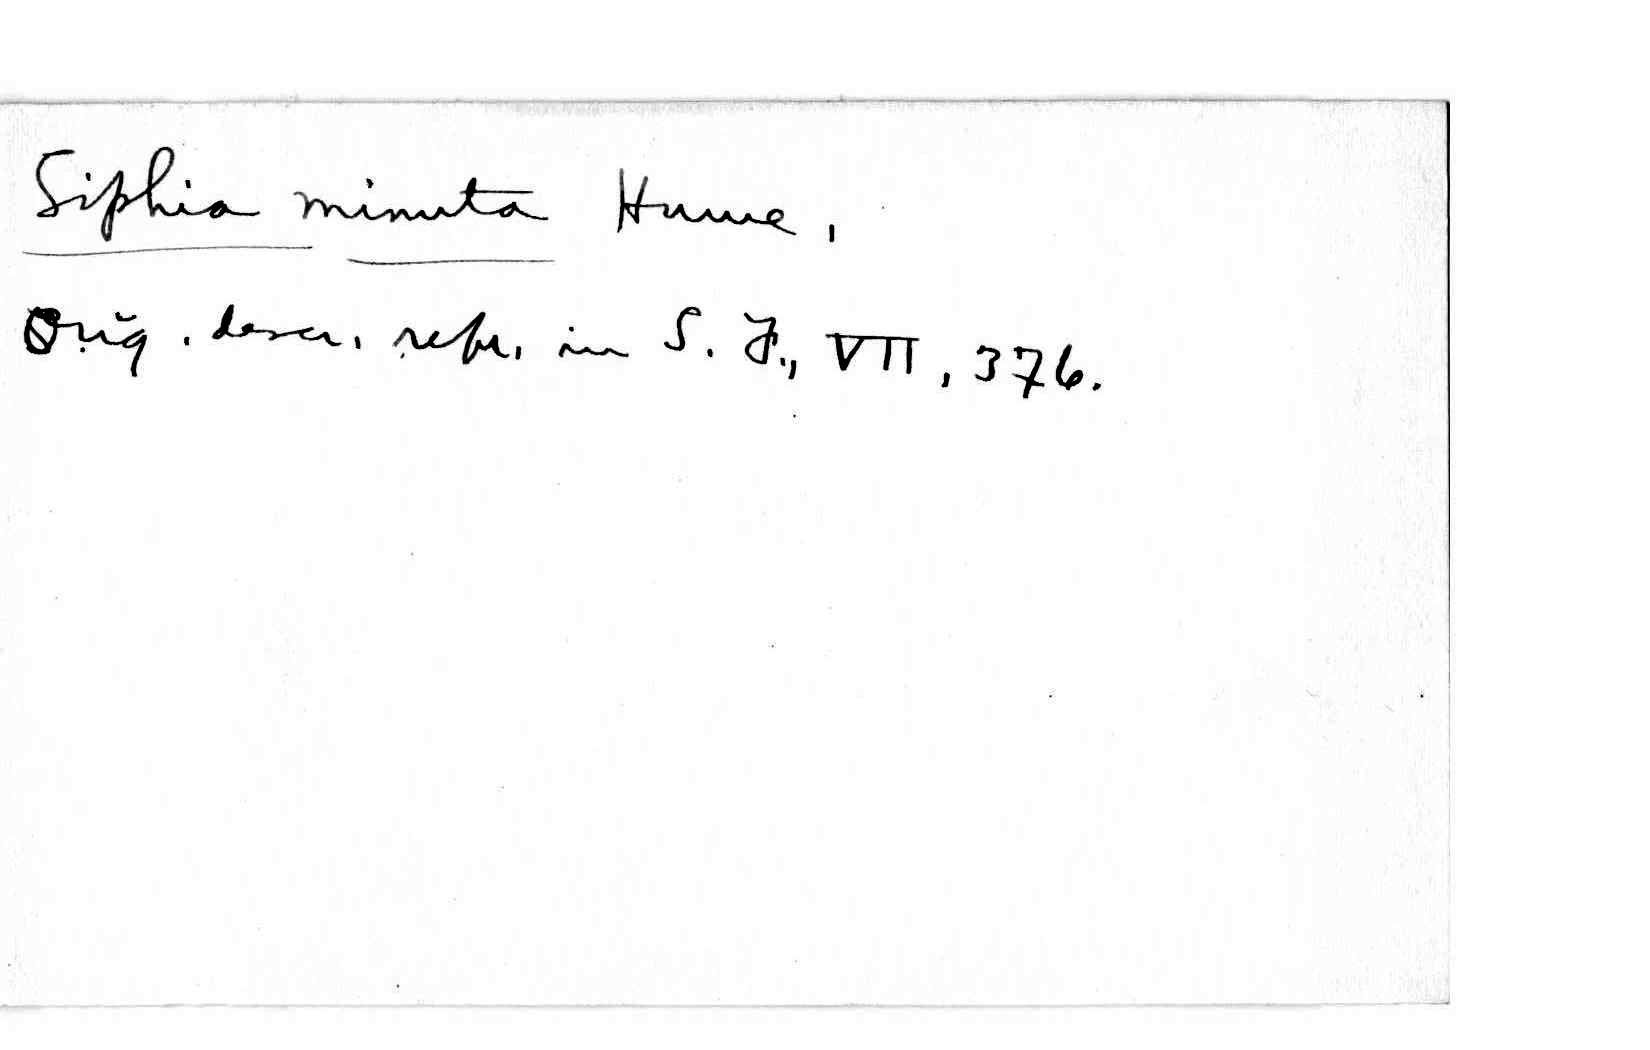 Siphia minuta Hume,
Orig. descr. repr. in S. F., VII, 376.